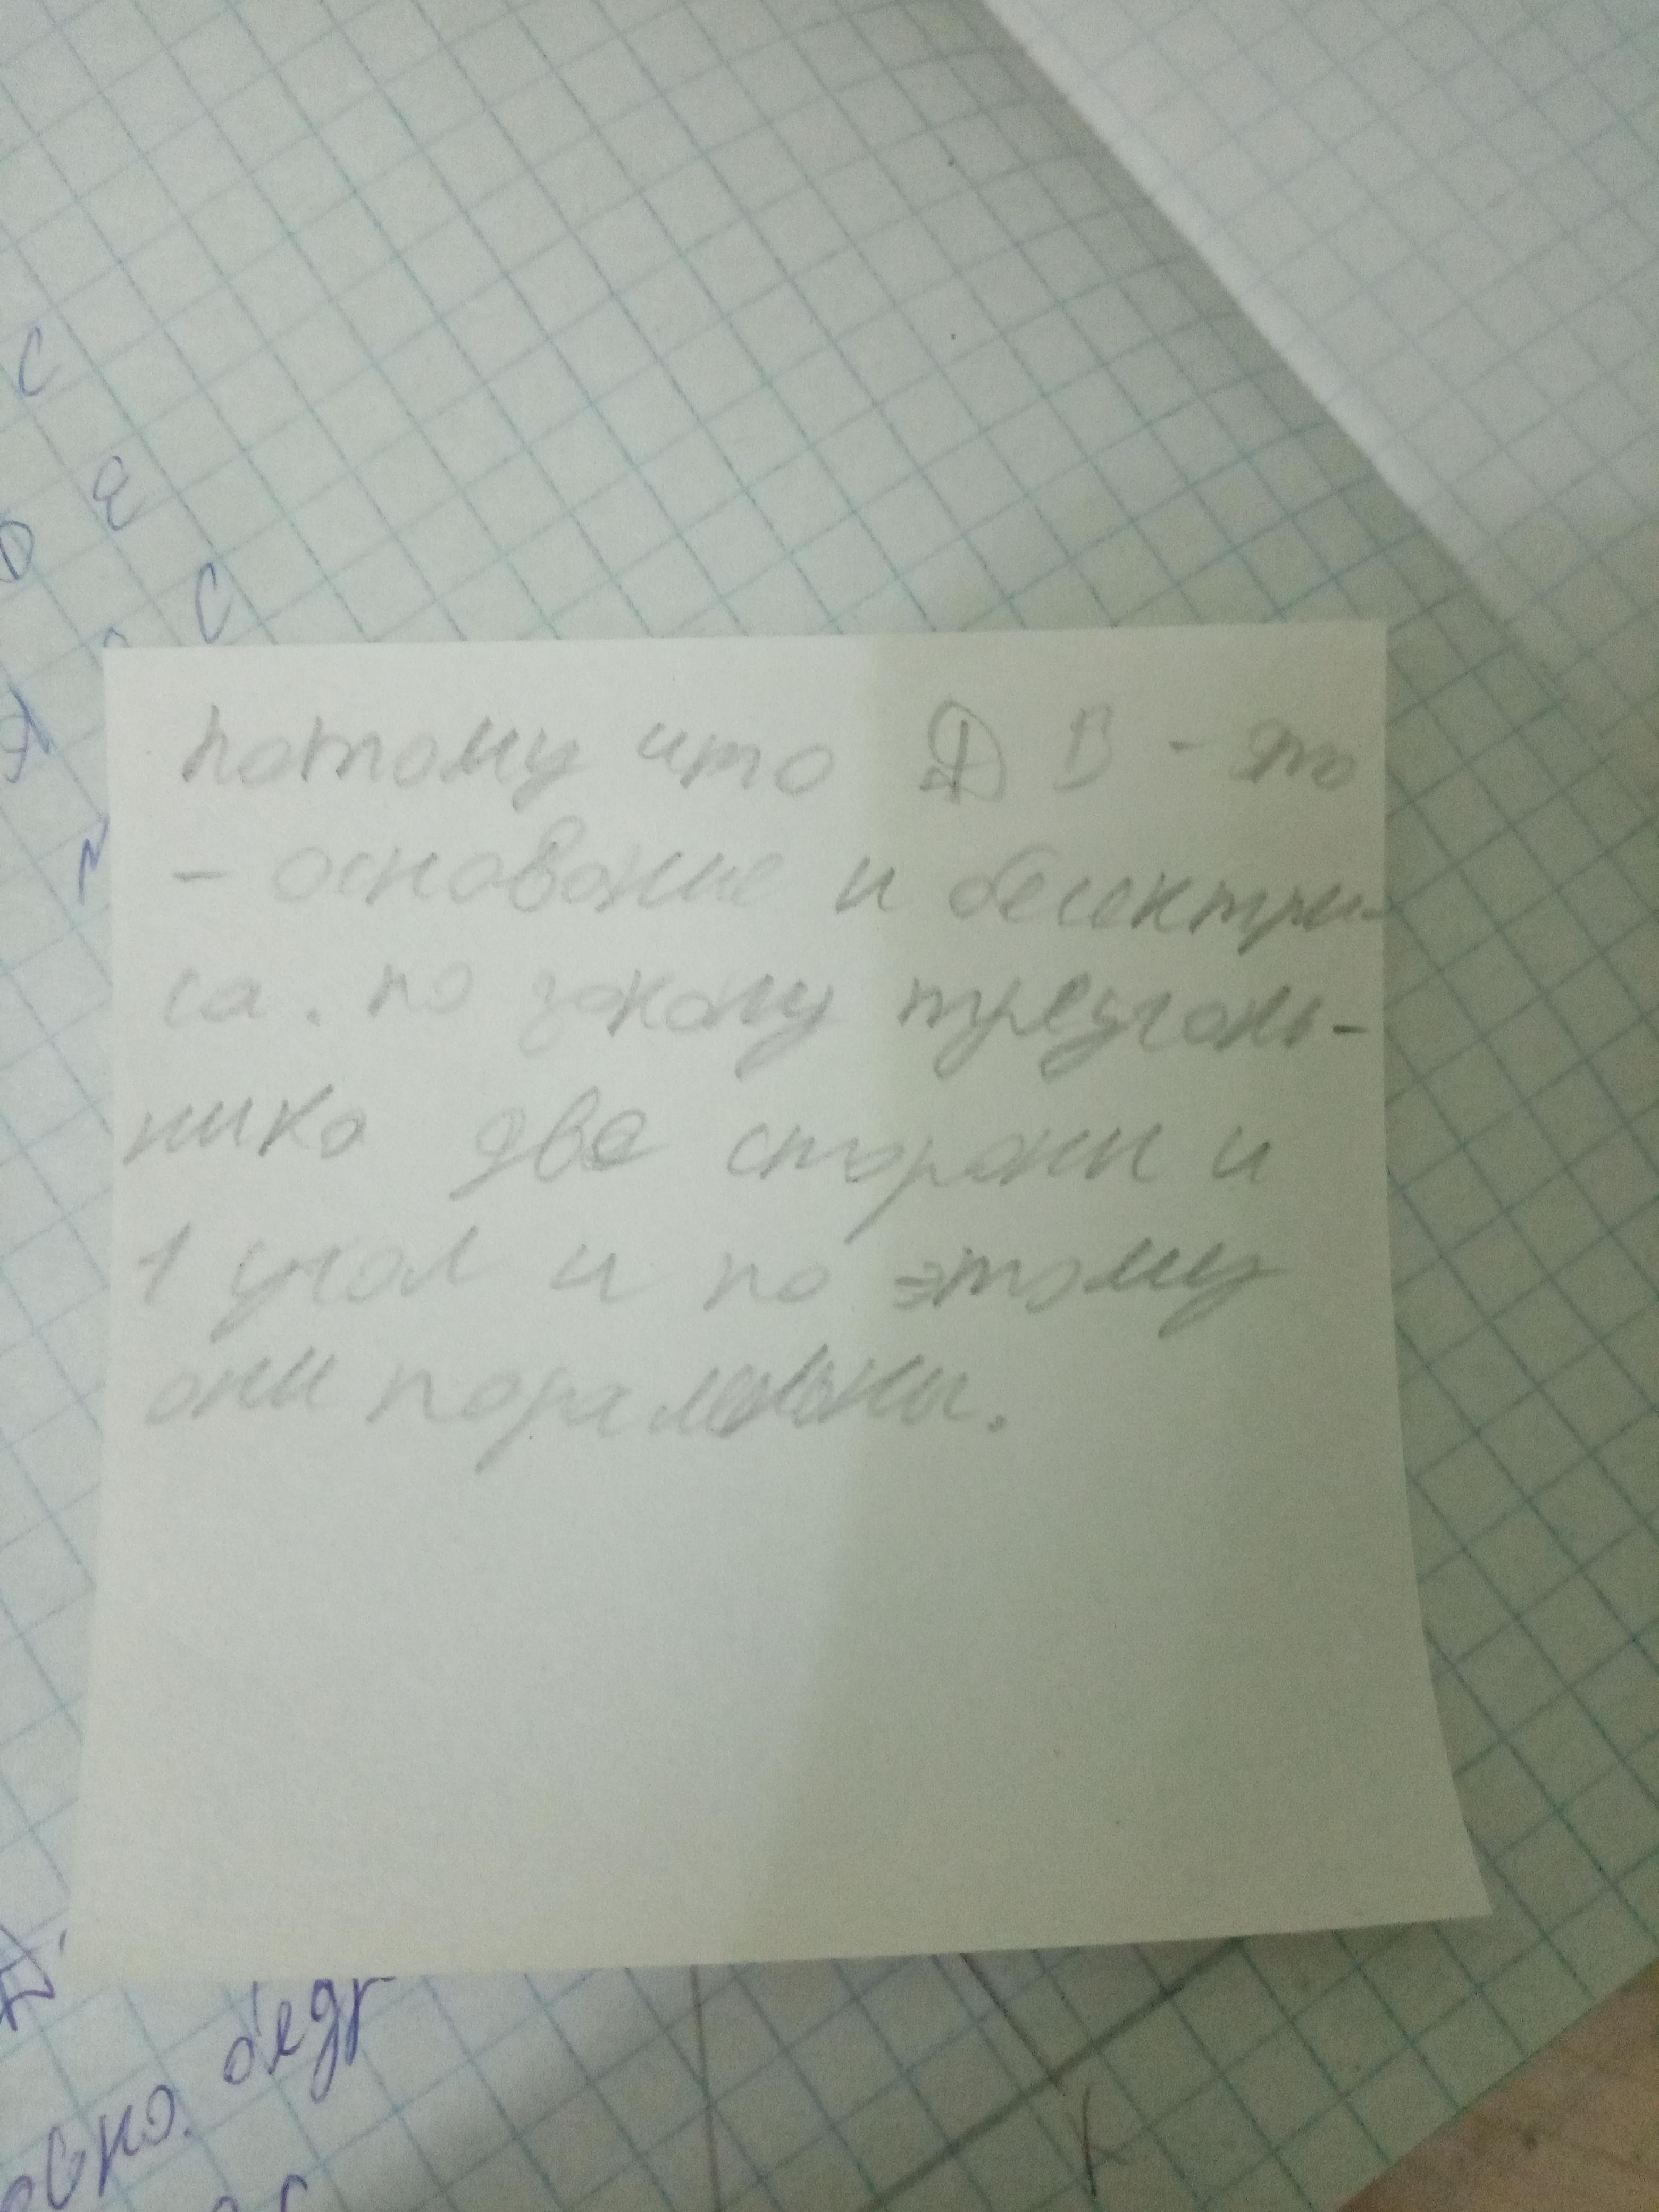 С
D E
С
N
потому что D B - это
- основание и бесектри-
са. по закону треуголь-
нико две сторони и
1 угол и по этому
они паралельны.
бедр
K